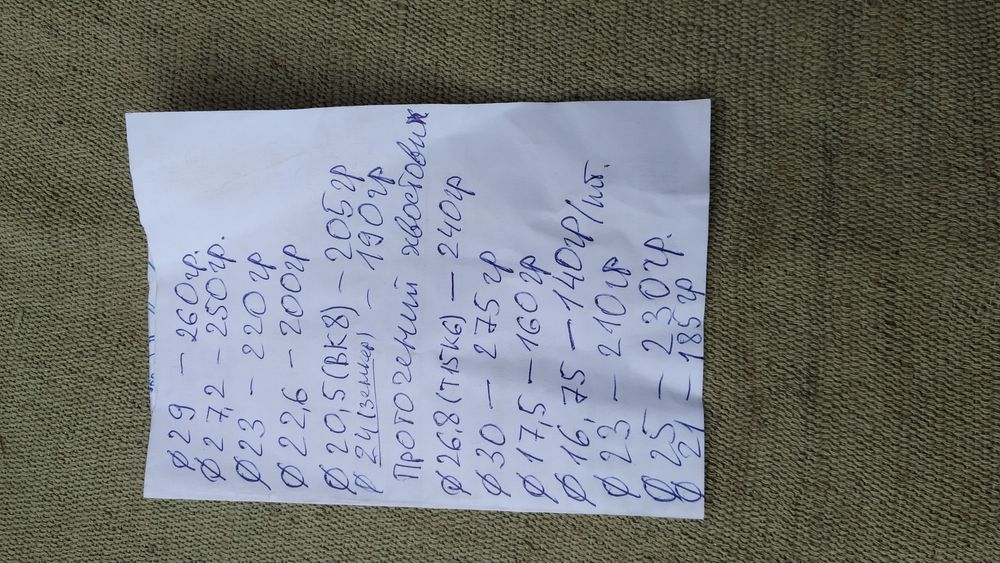 Ø 29 – 260гр.
Ø 27,2 – 250гр.
Ø 23 – 220гр
Ø 22,6 – 200гр
Ø 20,5 (ВК8) – 205гр
Ø 24 (зенкер) – 190гр
Проточений хвостовик
Ø 26,8 (Т15К6) – 240гр
Ø 30 – 275гр
Ø 17,5 – 160гр
Ø 16,75 – 140гр/шт.
Ø 23 – 210гр
Ø 25 – 230гр.
Ø 21 – 185гр